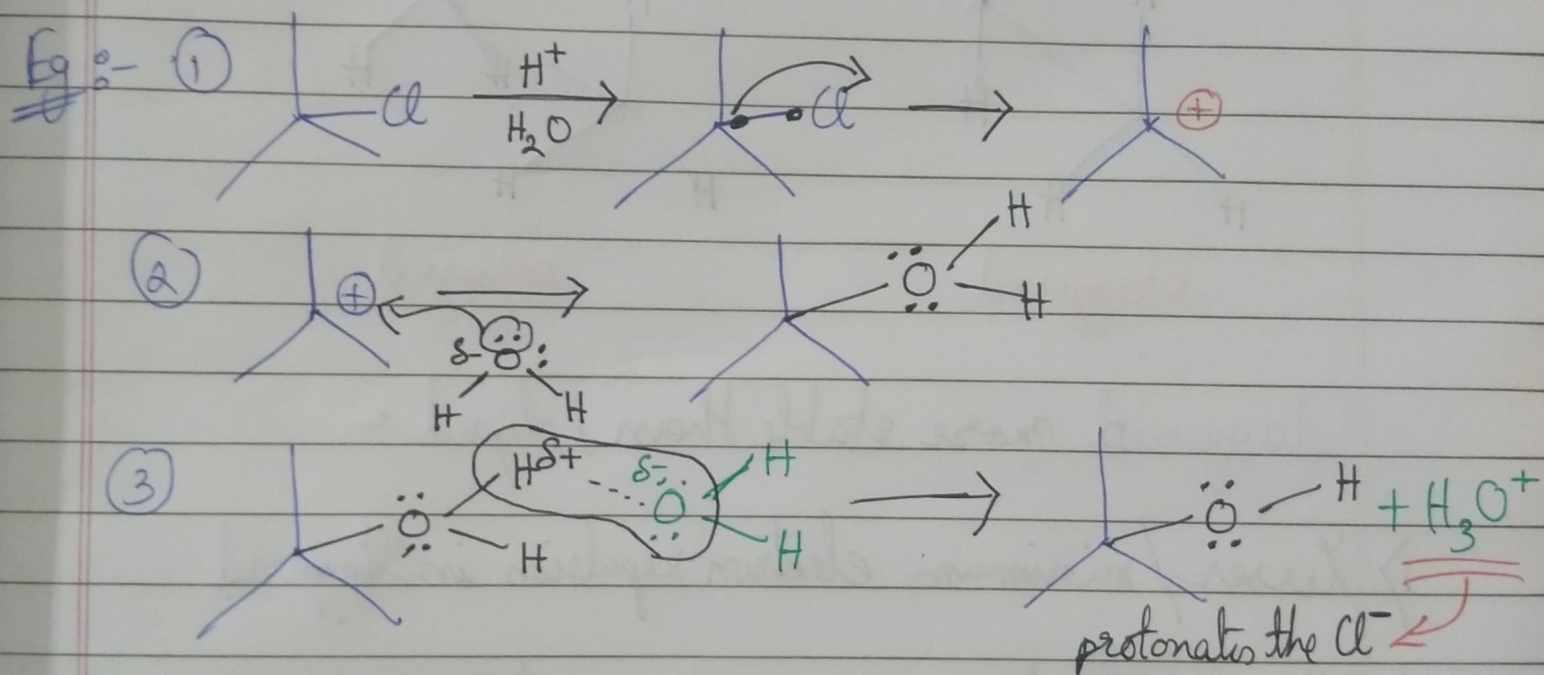 Eg :- ① Cl H⁺ H₂O Cl ⊕
② ⊕ δ- O H H O H H
③ O H δ+ H δ- O H H O H + H₃O⁺
protonates the Cl⁻